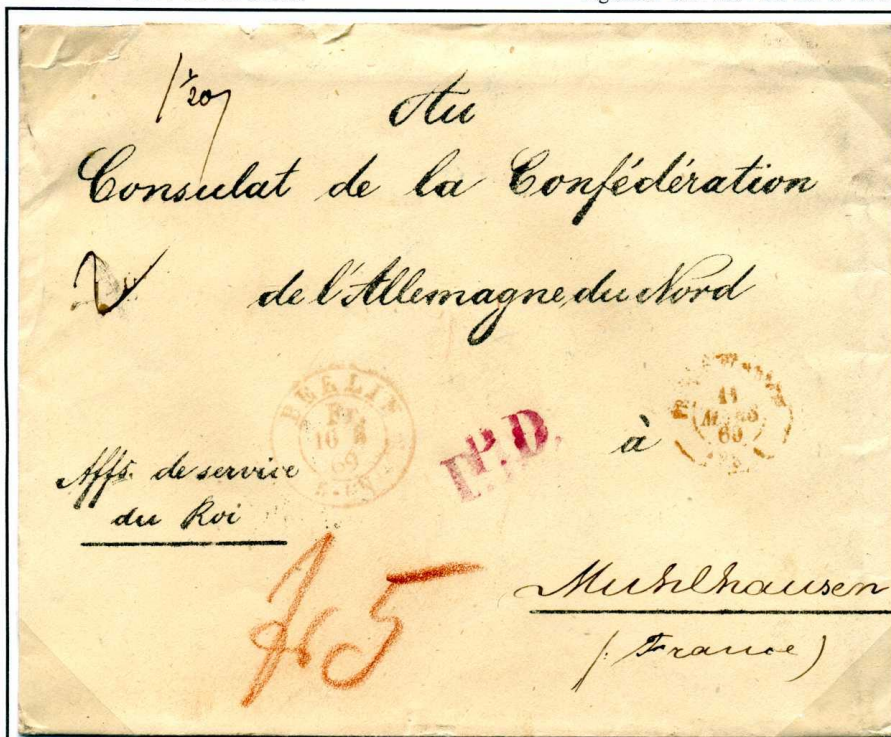 Au
Consulat de la Confédération
de l'Allemagne du Nord
BERLIN
FR.
P.D.
à
11
MARS
69
Affs. de service
du Roi
frco 5
Muhlhausen
(France)